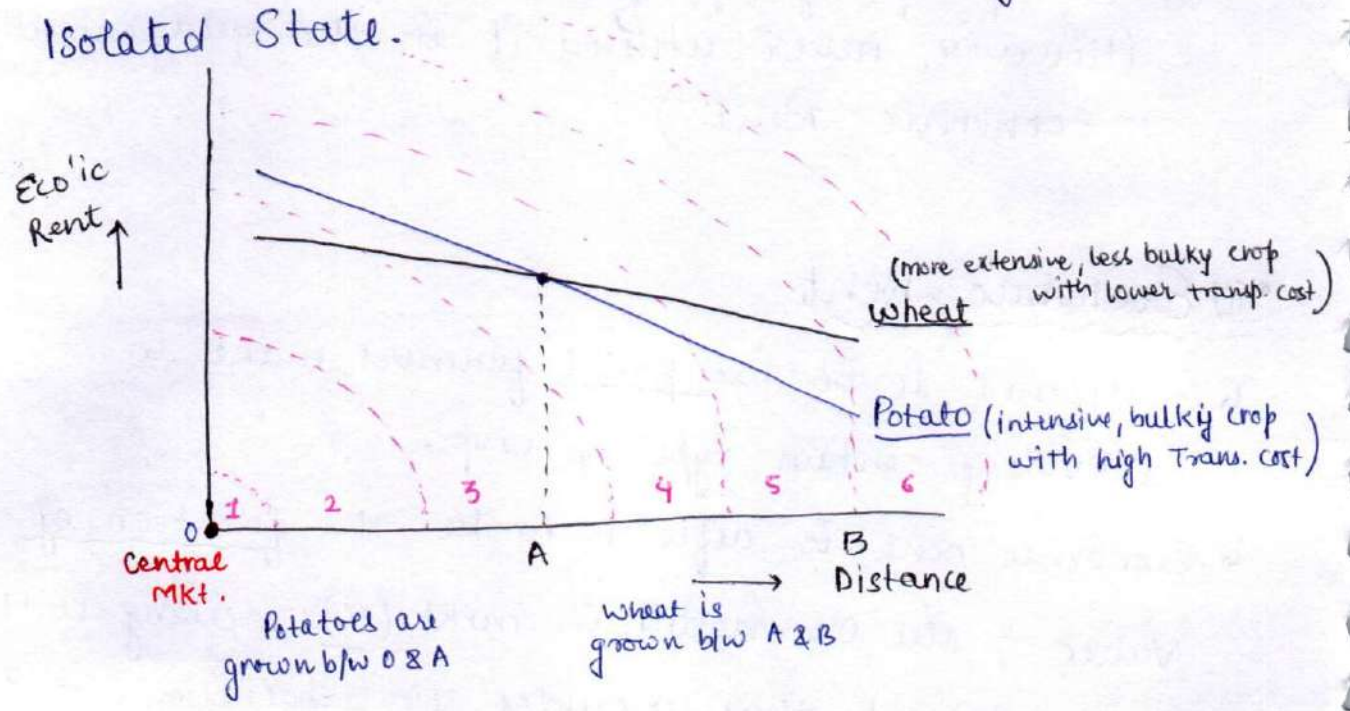 Isolated State.
Eco'ic
Rent
(more extensive, less bulky crop
with lower transp. cost)
Wheat
Potato (intensive, bulky crop
with high Trans. cost)
1 2 3 4 5 6
0
A
B
Central
Mkt.
Distance
Potatoes are
grown b/w 0 & A
wheat is
grown b/w A & B